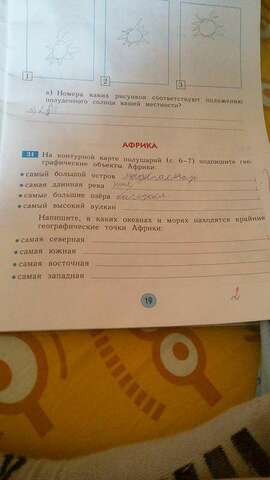 1 2 3
в) Номера каких рисунков соответствуют положению
полуденного солнца вашей местности?
АФРИКА
31 На контурной карте полушарий (с. 6–7) подпишите гео-
графические объекты Африки:
• самый большой остров
• самая длинная река
• самые большие озёра
• самый высокий вулкан
Напишите, в каких океанах и морях находятся крайние
географические точки Африки:
• самая северная
• самая южная
• самая восточная
• самая западная
19
2